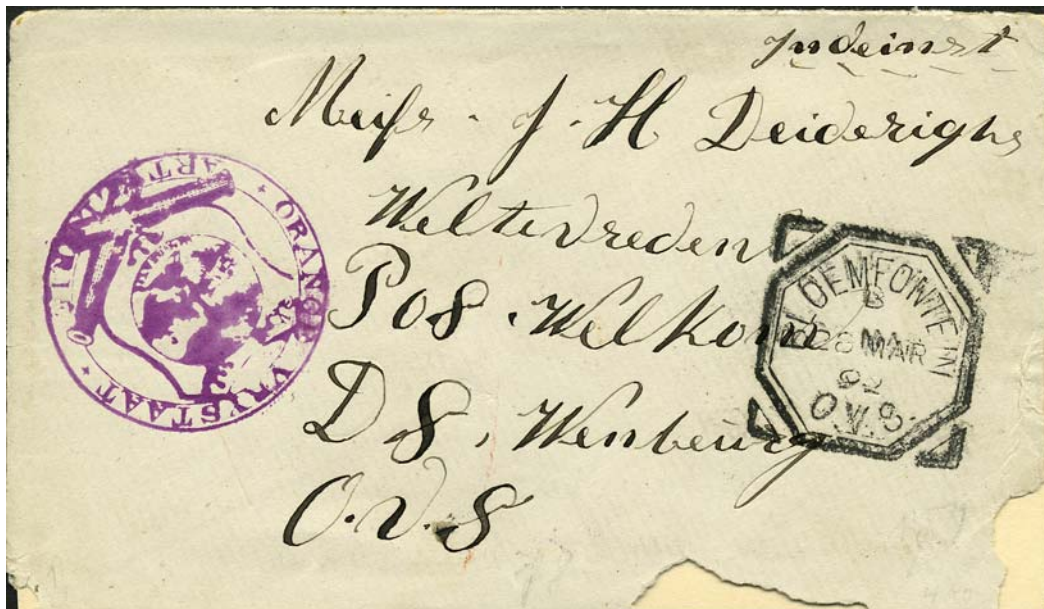 Indeinst
Meifs. J. H Deiderighs
Weltevreden
Pos. Welkom
DS. Wenburg
O.V.S
ORANGE VRYSTAAT
LOEMFONTEIN
B
28 MAR
92
O.V.S.